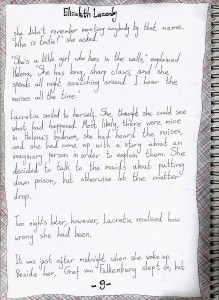 Elizabeth Lazenby
she didn't remember meeting anybody by that name.
"Who is Emilie?" she asked.
"She's a little girl who lives in the walls," explained
Helena. "She has long, sharp claws, and she
spends all night scratching around. I hear the
noises all the time."
Lucretia smiled to herself. She thought she could see
what had happened. Most likely, there were mice
in Helena's bedroom, she had heard the noises,
and she had come up with a story about an
imaginary person in order to explain them. She
decided to talk to the maids about putting
down poison, but otherwise let the matter
drop.
Two nights later, however, Lucretia realised how
wrong she had been.
It was just after midnight when she woke up.
Beside her, Graf von Falkenburg slept on, but
- 9 -